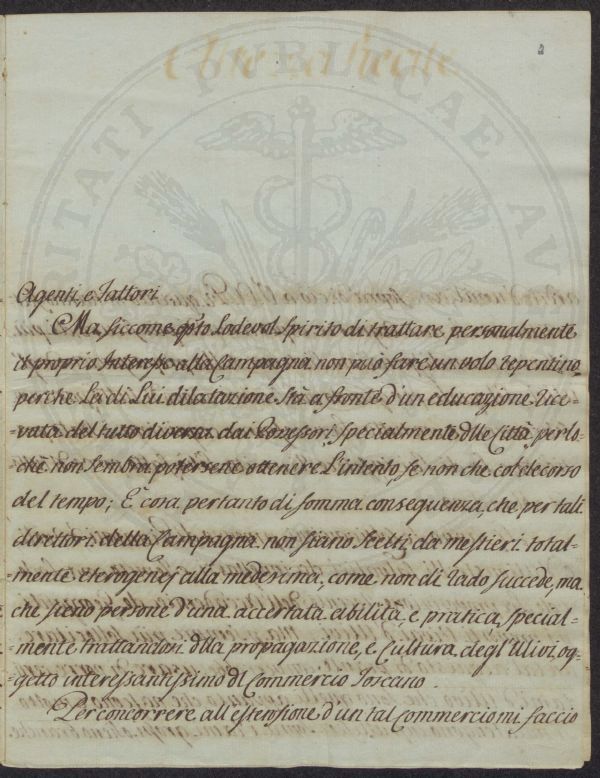 2
PROSPERITATI PUBLICAE AU
Agenti, e Fattori
Ma siccome q̃sto Lodevol Spirito di trattare personalmente
il proprio Interesse alla Campagna non può fare un volo repentino
perche la di Lui dilatazione Stà a fronte d'un educazione rice-
-vuta del tutto diversa dai Possessori specialmente dlle Città perlo-
-chè non sembra potersene ottenere L'intento, se non che col decorso
del tempo; E' cosa pertanto di somma conseguenza, che per tali
direttori della Campagna non siano scelti da mestieri total-
-mente eterogenej alla medesima, come non di rado succede, ma
che sieno persone d'una accertata abilità, e pratica, special-
-mente trattandosi dlla propagazione, e Cultura degl'Ulivi, og-
-getto interessantissimo dl Commercio Toscano.
Per concorrere all'estensione d'un tal Commercio mi faccio